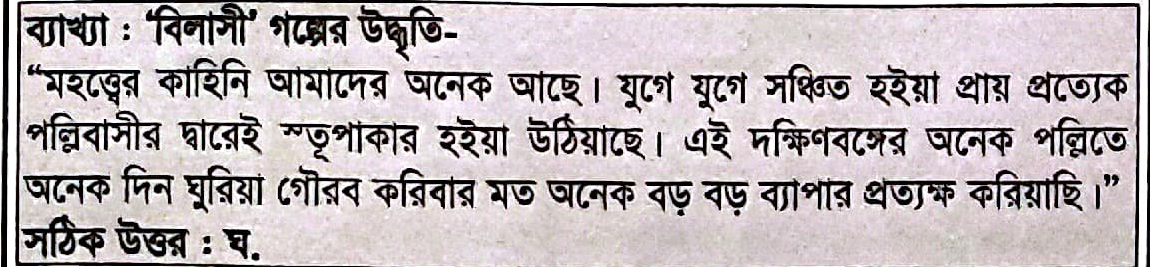 ব্যাখ্যা : ‘বিলাসী’ গল্পের উদ্ধৃতি-
“মহত্ত্বের কাহিনি আমাদের অনেক আছে। যুগে যুগে সঞ্চিত হইয়া প্রায় প্রত্যেক
পল্লিবাসীর দ্বারেই স্তূপাকার হইয়া উঠিয়াছে। এই দক্ষিণবঙ্গের অনেক পল্লিতে
অনেক দিন ঘুরিয়া গৌরব করিবার মত অনেক বড় বড় ব্যাপার প্রত্যক্ষ করিয়াছি।”
সঠিক উত্তর : ঘ.